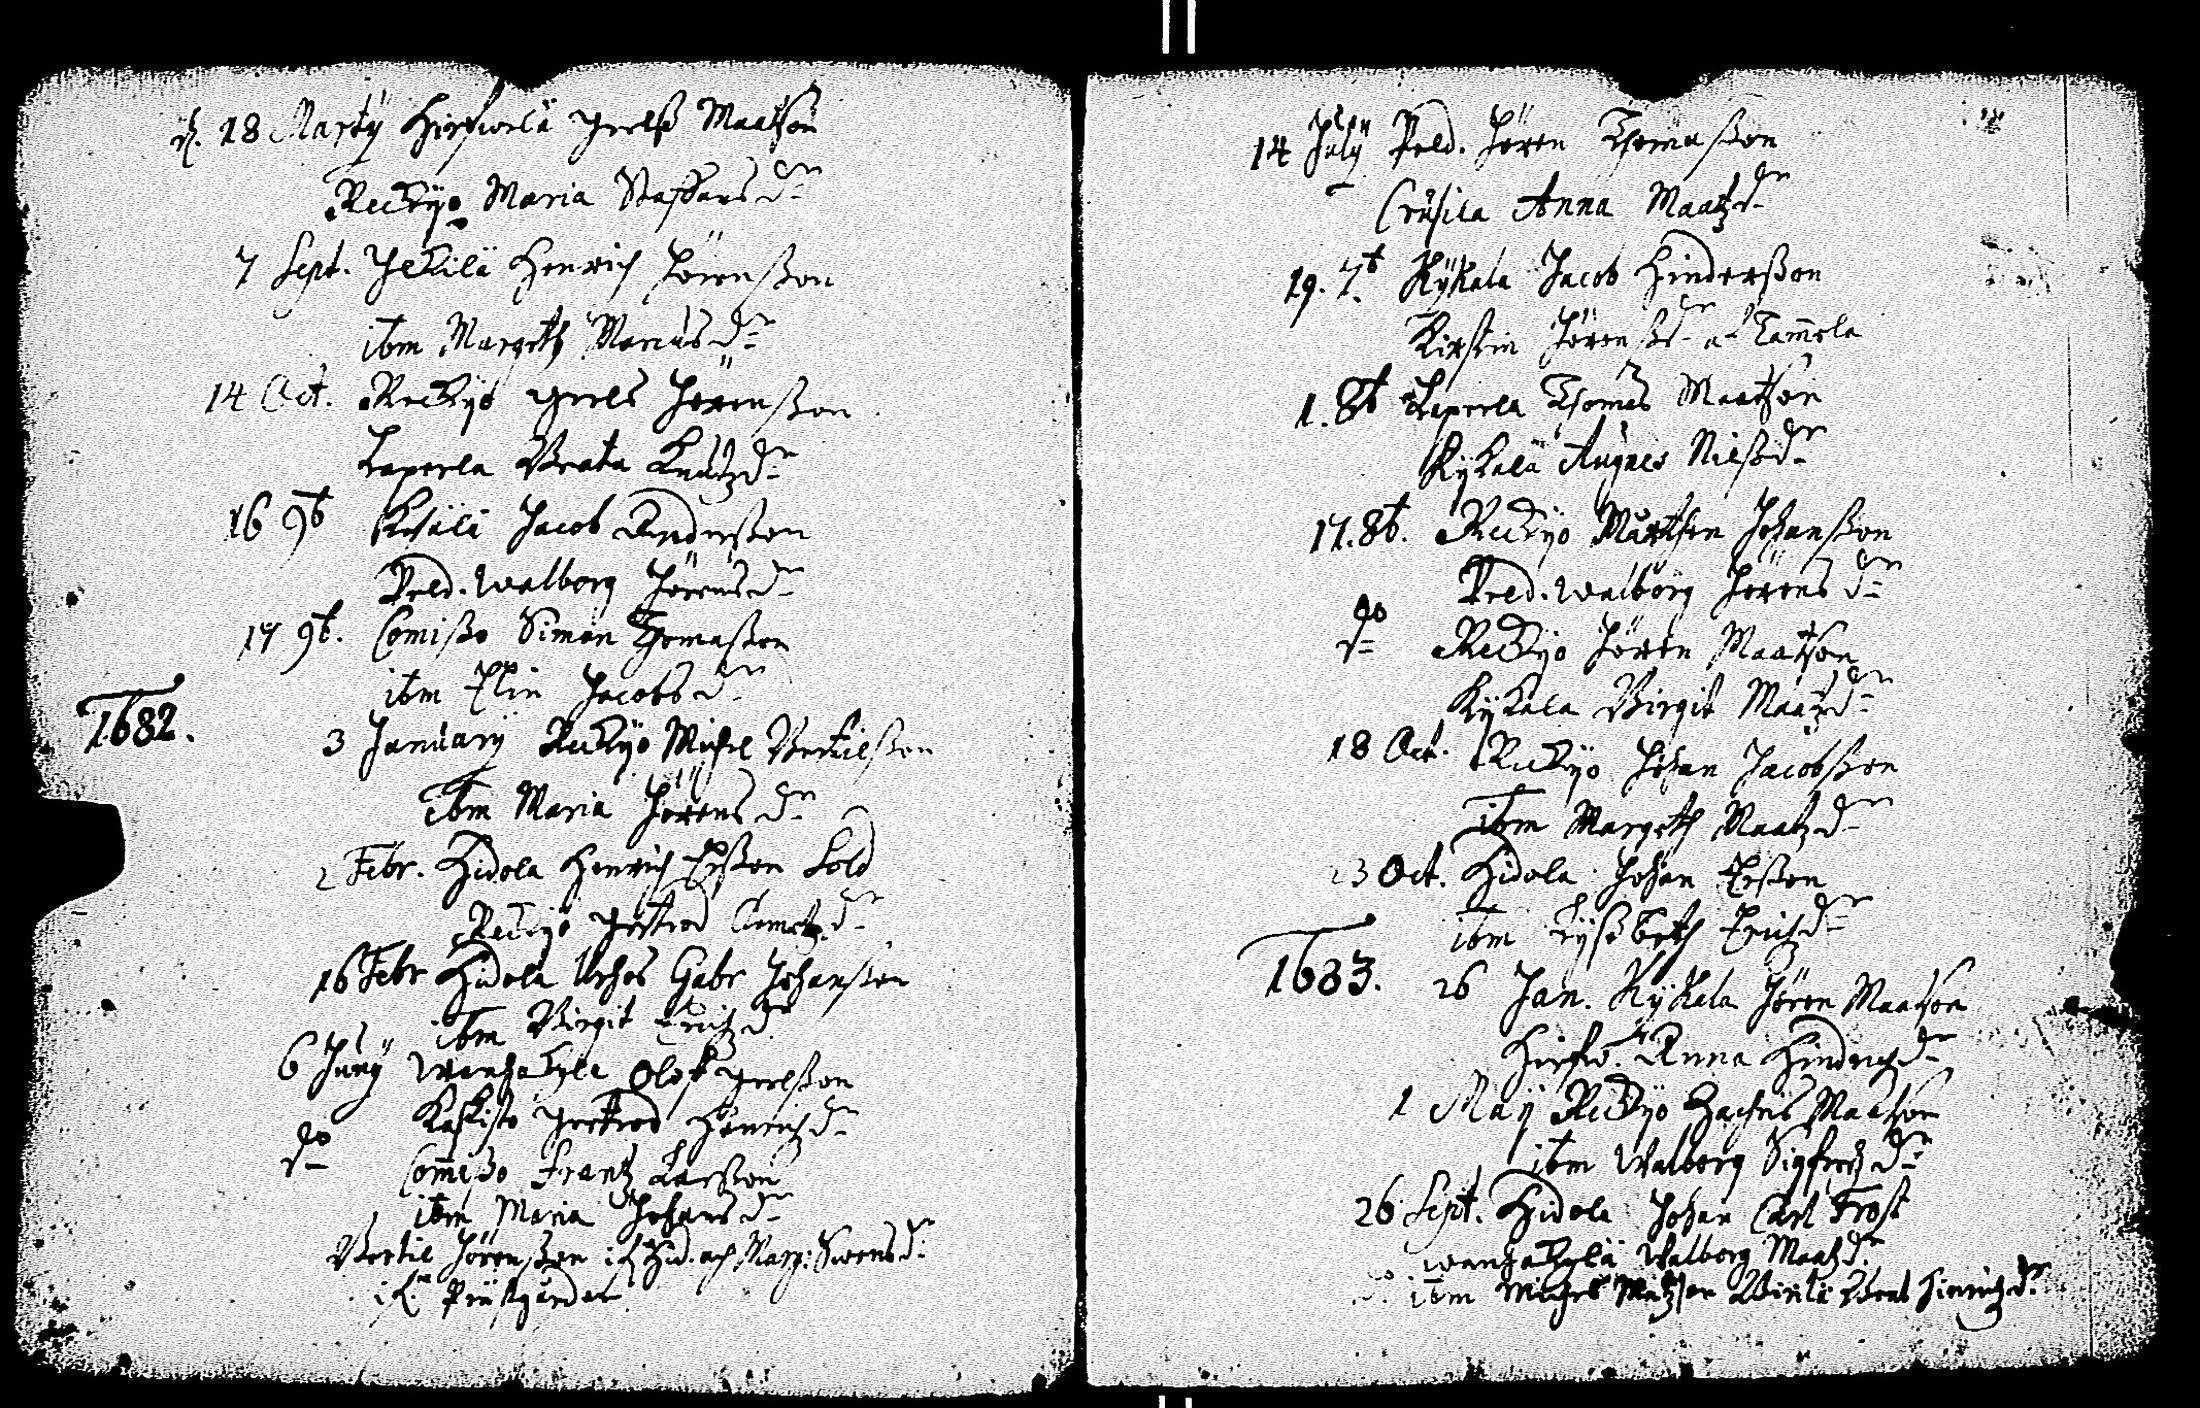 d. 18 Marty Hirswelä Grelß Maatßon
Reckÿo Maria Staffans dr
7 Sept. Jekilä Henrich Jörenßon
ibm Margeth Marcus dr
14 Oct. Reckÿo Grels Jörenßon
Laperla Beata Knutz dr
16 9b Kesälä Jacob Andersßon
Peld. Walborg Jörens dr
17 9b. Comißo Simon Thomaßon
ibm Elin Jacobs dr
1682. 3 January Reckÿo Michel Bertilßon
ibm Maria Jörens dr
2 Febr. Hidola Henrich Erßon Sold
Reckyo Gertrod Clemetz dr
16 Febr Hidola Gabr Johanßon
ibm Birgit Erichz dr
6 Juny Wanhakyle Oloff Grelßon
Kaskisto Gertrod Henrichz dr
do Comeßo Frantz Larßon
ibm Maria Johans dr
Bertil Jörenßon i Hid. och Marg: Swens d:
i Prästgården
14 July Peld. Jören Thomaßon
Crusila Anna Maatz dr
19. 7b Kÿkala Jacob Hinderßon
Kirstin Jörenß dr a Tam̄ela
1. 8b Laperla Thomas Maatßon
Kÿkala Augnes Nilß dr
17. 8b. Reckyo Marthen Johanßon
Peld. Walborg Jörens dr
do Reckyo Jören Maatßon
Kykala Birgit Maatz dr
18 Oct. Reckyo Johan Jacobßon
ibm Margeth Maatz dr
23 Oct. Hidola Johan Erßon
ibm Lyßbeth Erichz dr
1683. 26 Jan. Kÿkala Jören Maatßon
Hirsw. Anna Hindrich dr
1 Maÿ Reckÿo Zachris Maatßon
ibm Walborg Sigfredz dr
26 Sept. Hidola Johan Carl Frost
wanhakylä Walborg Maatz d:
do. ibm Michel Matzßon Beat Hinrichz dr